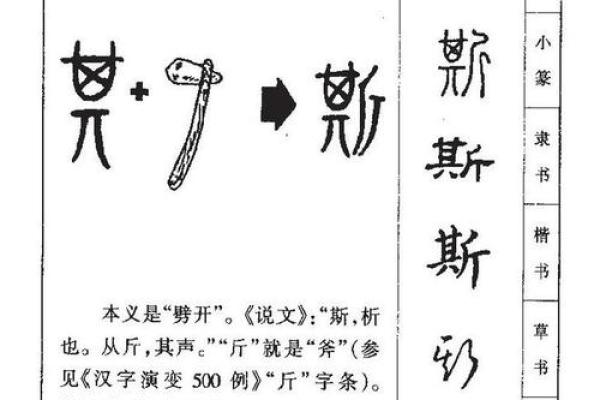 其 + → 斯
本义是“劈开”。《说文》：“斯，析
也。从斤，其声。”“斤”就是“斧”（参
见《汉字演变 500 例》“斤”字条）。
斯 小篆
斯 隶书
斯 楷书
斯 草书